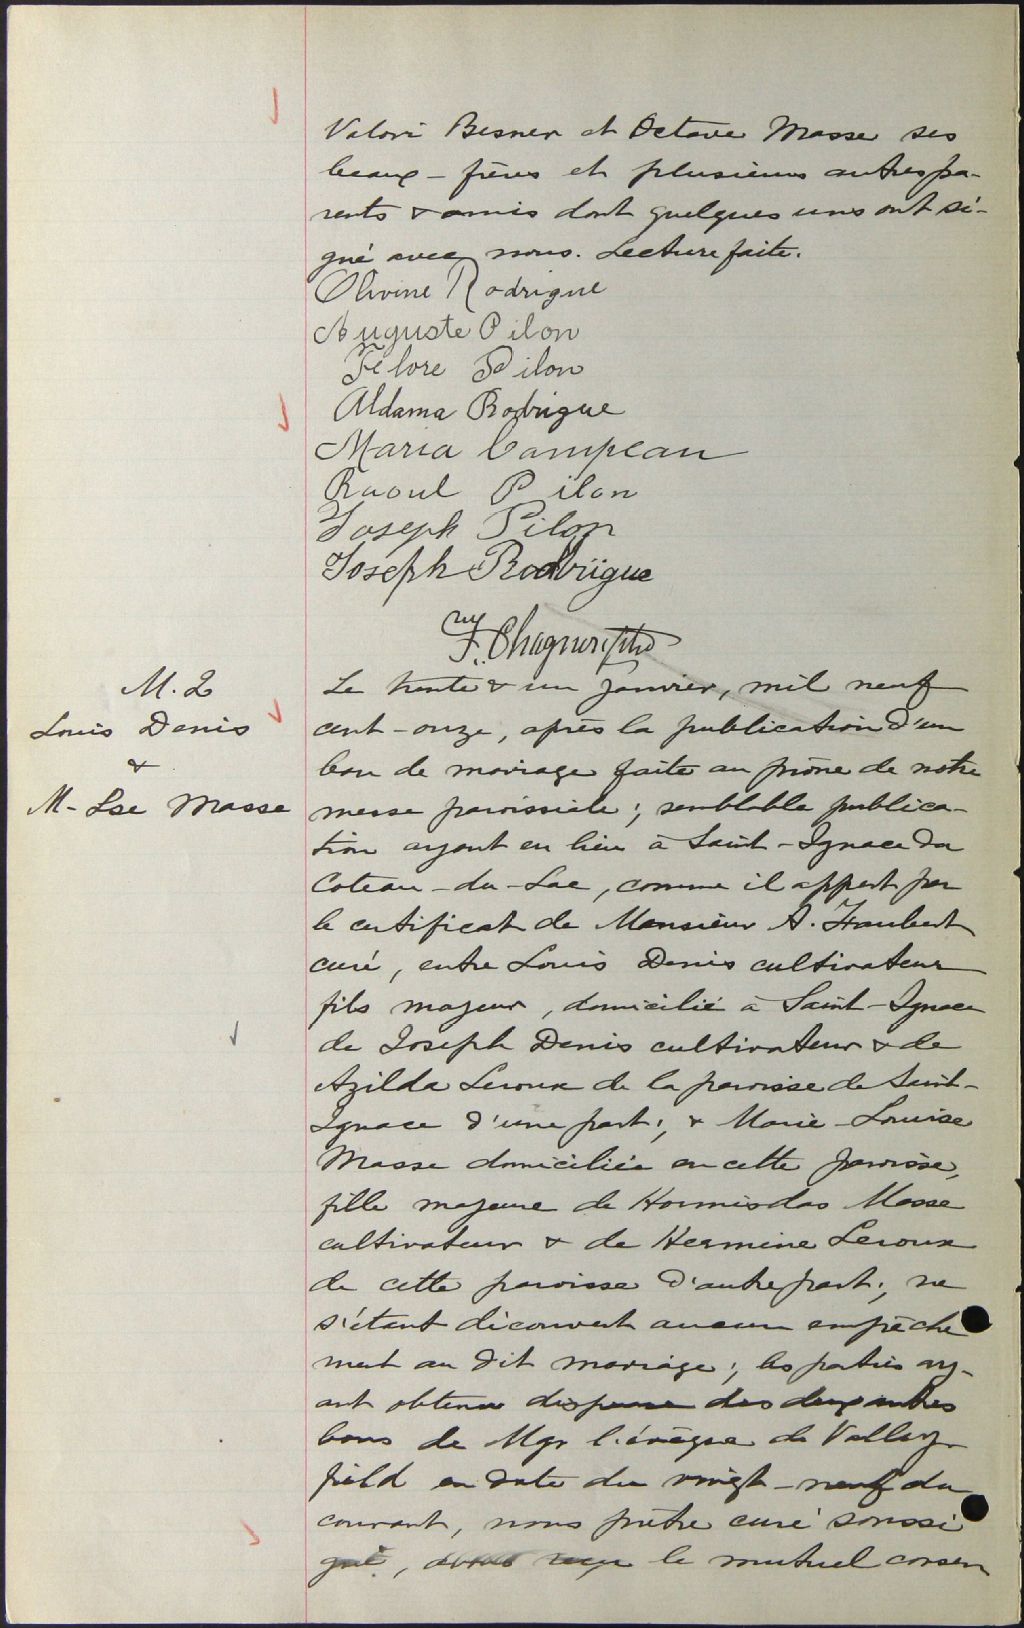 Valori Besner et Octave Masse ses
beaux-frères et plusieurs autres pa-
rents & amis dont quelques uns ont si-
gné avec nous. Lecture faite.
Olivine Rodrigue
Auguste Pilon
Félore Pilon
Aldama Rodrigue
Maria Campeau
Raoul Pilon
Joseph Pilon
Joseph Rodrigue
F. Chagnon ptre
M. 2
Louis Denis
&
M-Lse Masse
Le trente & un janvier, mil neuf
cent-onze, après la publication d'un
ban de mariage faite au prône de notre
messe paroissiale; semblable publica-
tion ayant eu lieu à Saint-Ignace du
Coteau-du-Lac, comme il appert par
le certificat de Monsieur A.
curé, entre Louis Denis cultivateur
fils majeur, domicilié à Saint-Ignace
de Joseph Denis cultivateur & de
Azilda Leroux de la paroisse de Saint-
Ignace d'une part; & Marie-Louise
Masse domiciliée en cette paroisse,
fille majeure de Hormisdas Masse
cultivateur & de Hermine Leroux
de cette paroisse d'autre part; ne
s'étant découvert aucun empêche
ment au dit mariage; les parties ay-
ant obtenu dispense des deux autres
bans de Mgr l'évêque de Valley-
field en date du vingt-neuf du
courant, nous prêtre curé soussi
gné, avons reçu le mutuel consen